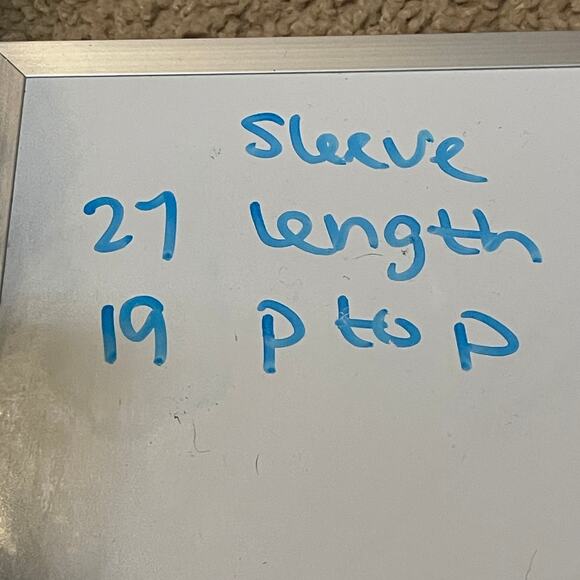 Sleeve
27 length
19 P to P